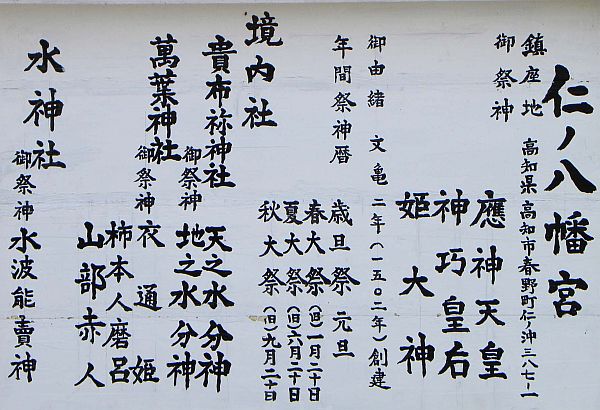 仁ノ八幡宮
鎮座地 高知県高知市春野町仁ノ沖三八七ー一
御祭神 應神天皇
神巧皇后
姫大神
御由緒 文亀二年(一五〇二年)創建
年間祭神暦 歳旦祭 元旦
春大祭 (旧)一月二十日
夏大祭 (旧)六月二十日
秋大祭 (旧)九月二十日
境内社
貴布祢神社 御祭神 天之水分神
地之水分神
萬葉神社 御祭神 衣通姫
柿本人磨呂
山部赤人
水神社 御祭神 水波能賣神